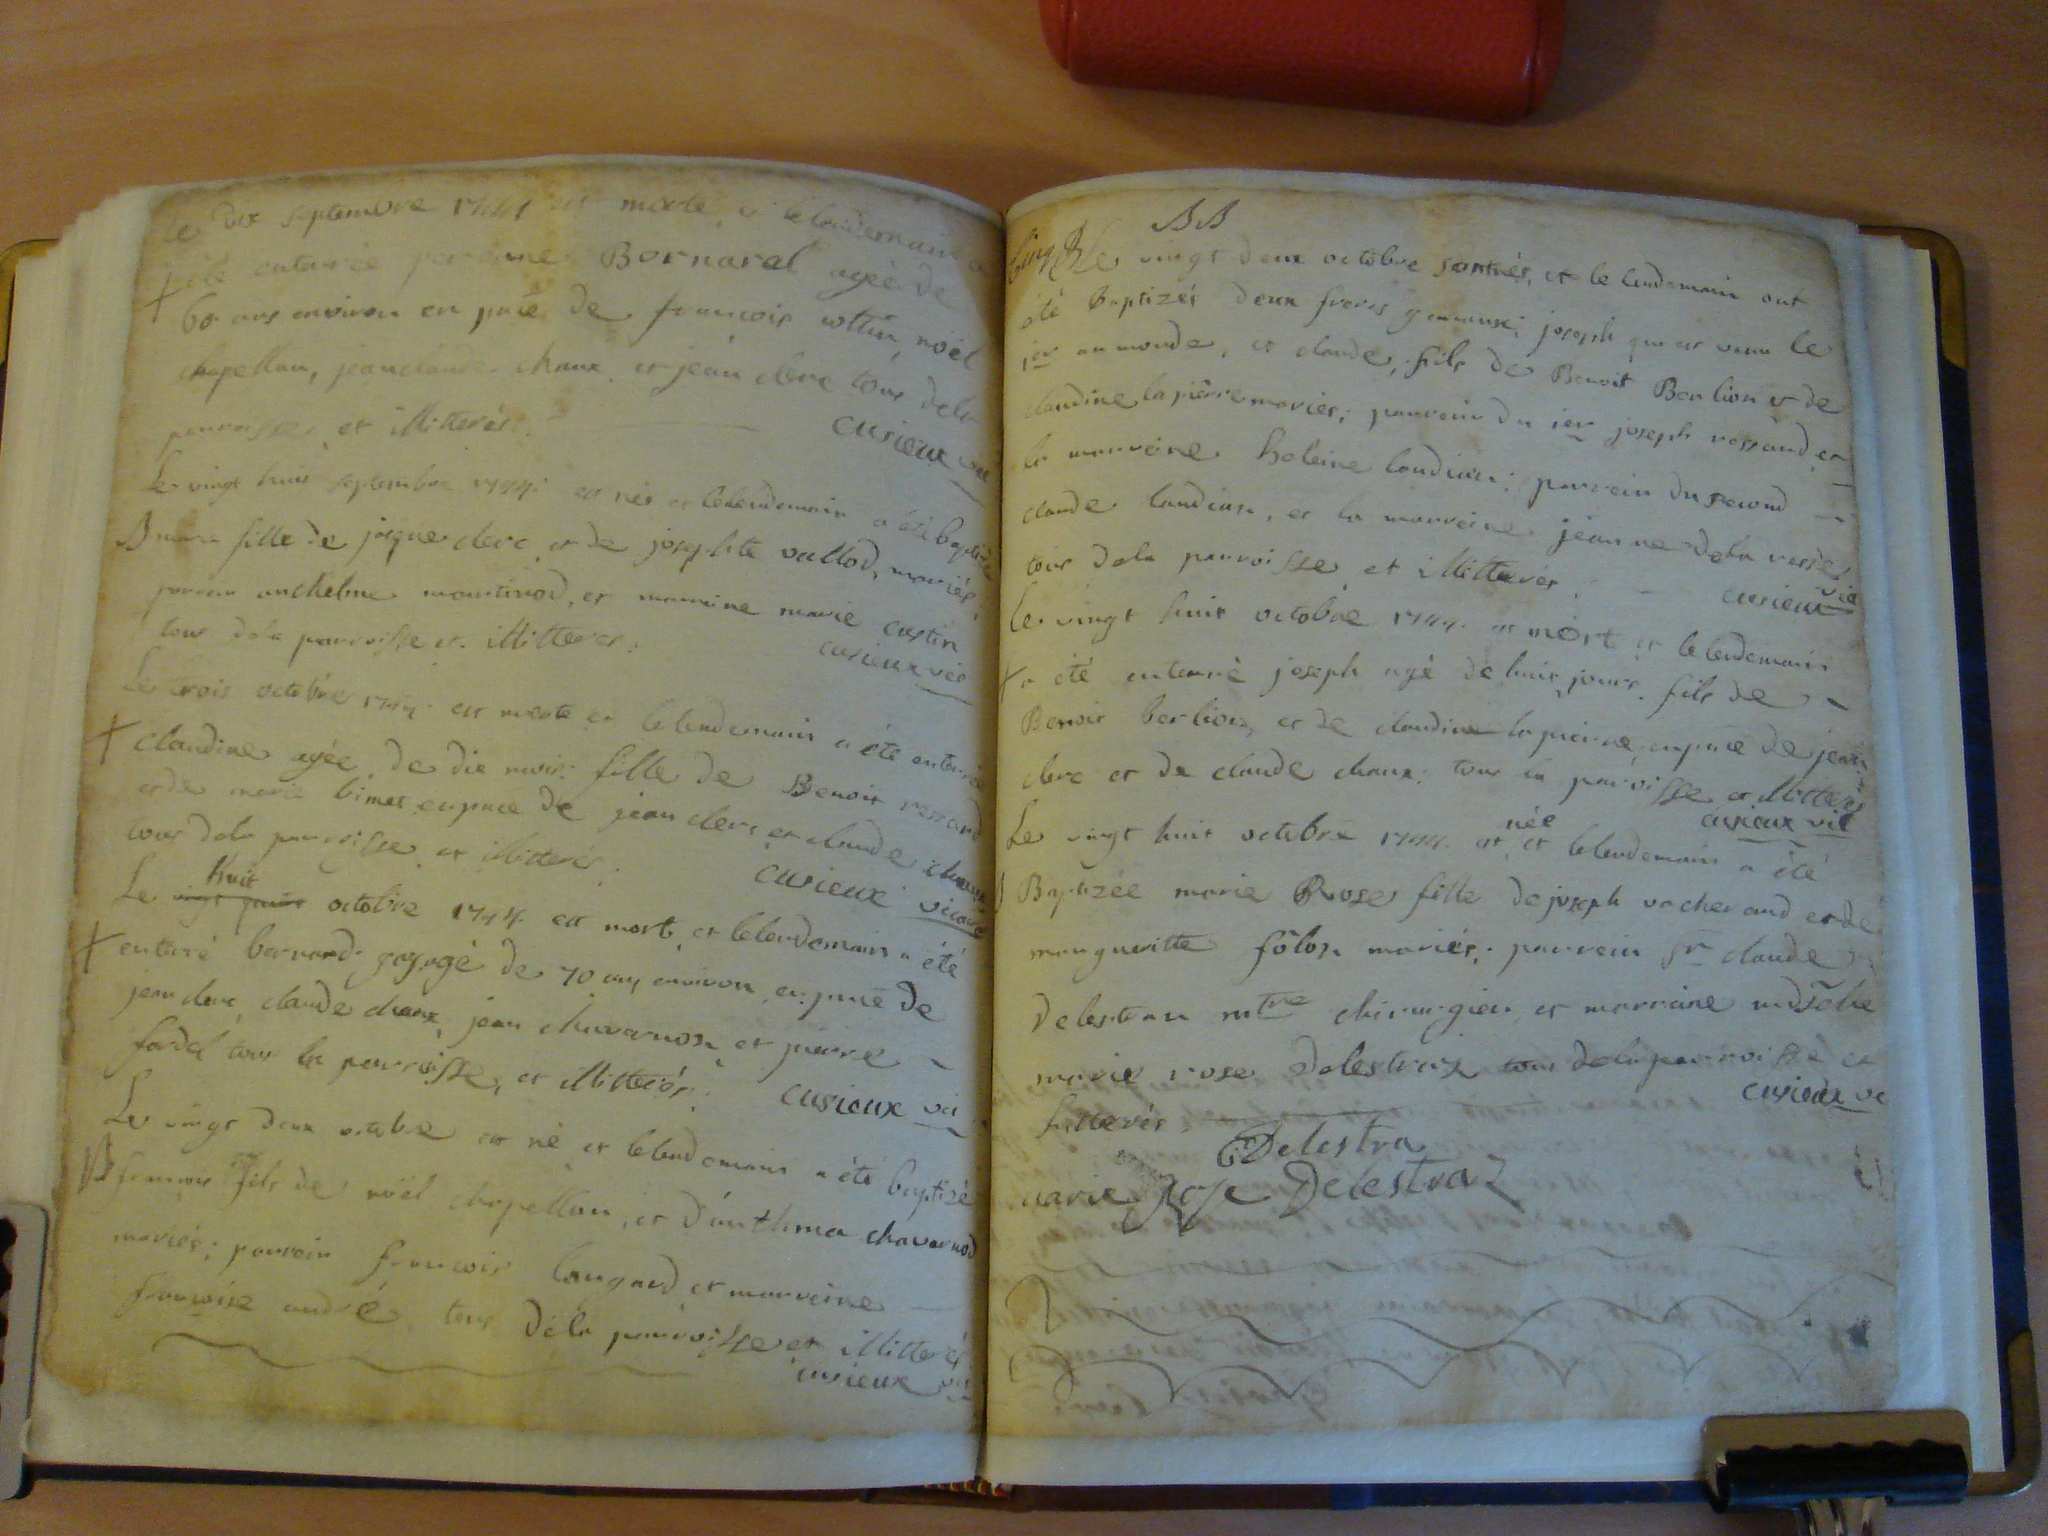 le dix septembre 1744 est morte et le lendemain a
été enterrée Bornarel agée de
60 ans environ en pnce de francois cottin, noël
chapellan, jean claude chaux et jean clerc tous dela
parroisse, et illitterés.
cusieux vic
Le vingt huit septembre 1744. est née et lelendemain a été baptisée
B fille de jacque clerc et de josephte vallod, mariés,
parrein anthelme montinod, et marraine marie custin
tous dela parroisse et illitteres.
cusieux vic
Le trois octobre 1744. est morte et lelendemain a été enterrée
+ claudine agée de dix mois fille de Benoit ressand
et de marie bimet enpnce de jean clerc et claude chaux
tous dela parroisse et illitterés.
cusieux vicaire
huit
Le octobre 1744. est mort, et lelendemain a été
+ enterré bernard agé de 70 ans environ enpnce de
jean clerc, claude chaux, jean chavarnon et pierre
fardel tous la parroisse, et illitterés.
cusieux vic
Le vingt deux octobre est né et lelendemain a été baptizé
B francois fils de noël chapellan, et d'anthma chavarnod
mariés; parrein francois langard et marreine
francoise andré tous dela parroisse et illitterés
cusieux vic
BB
Le vingt deux octobre sont nés, et le lendemain ont
été baptizés deux freres gemeaux; joseph qui est venu le
ier au monde, et claude, fils de Benoit Berlion et de
claudine la pierre mariés; parrein du ier joseph ressand et
la marreine heleine landian; parrein du second
claude landian, et la marreine jeanne dela
tous dela parroisse et illitterés.
cusieux vic
Le vingt huit octobre 1744. est mort et lelendemain
+ a été enterré joseph agé de huit jours. fils de
Benoit berlion, et de claudine la pierre, enpnce de jean
clerc et de claude chaux. tous la parroisse et illitterés
cusieux vic
née
Le vingt huit octobre 1744. est et lelendemain a été
Baptizée marie Rose fille de joseph vacherand et de
margueritte fôlon mariés. parrein Sr claude
Delestrau mtre chirurgien et marraine mdselle
marie rose Delestraz tous dela parroisse et
litterés.
cusieux vc
C Delestra
marie Rose Delestraz